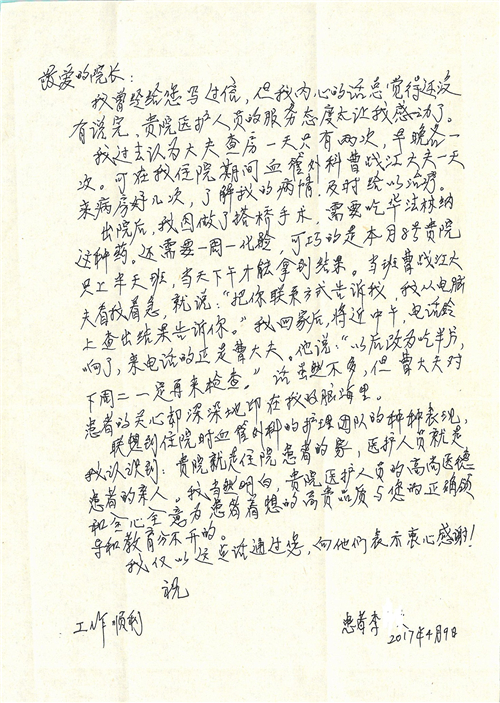 敬爱的院长：
我曾经给您写过信，但我内心的话总觉得还没
有说完，贵院医护人员的服务态度太让我感动了。
我过去认为大夫查房一天只有两次，早晚各一
次。可在我住院期间血管外科曹战江大夫一天
来病房好几次，了解我的病情，及时给以治疗。
出院后，我因做了搭桥手术，需要吃华法林纳
这种药。还需要一周一化验，可巧的是本月8号贵院
只上半天班，当天下午才能拿到结果。当班曹战江大
夫看我着急，就说：“把你联系方式告诉我，我从电脑
上查出结果告诉你。”我回家后，将近中午，电话铃
响了，来电话的正是曹大夫。他说：“以后改为吃半片，
下周二一定再来检查。”话虽然不多，但曹大夫对
患者的关心却深深地印在我的脑海里。
联想到住院时血管外科的护理团队的种种表现，
我认识到：贵院就是住院患者的家，医护人员就是
患者的亲人。我当然明白，贵院医护人员的高尚医德
和全心全意为患者着想的高贵品质与您的正确领
导和教育分不开的。
我仅以这点话通过您，向他们表示衷心感谢！
祝
工作顺利
患者李
2017年4月9日